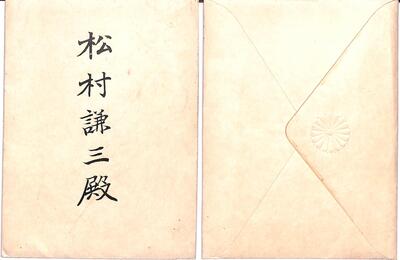 松村謙三殿